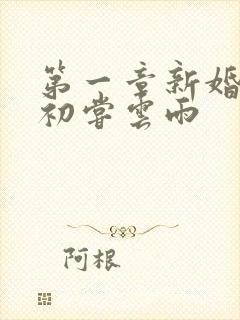 第一章新婚
初嘗雲雨
阿根